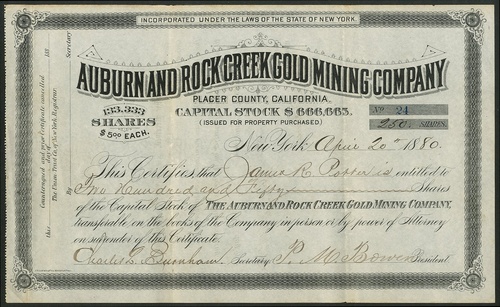 INCORPORATED UNDER THE LAWS OF THE STATE OF NEW YORK.
AUBURN AND ROCK CREEK GOLD MINING COMPANY
PLACER COUNTY, CALIFORNIA.
133,333 SHARES $5.00 EACH.
CAPITAL STOCK $ 666,665.
(ISSUED FOR PROPERTY PURCHASED)
No 24
250 SHARES.
New York April 20th 1880.
This Certifies that James R is entitled to
Two Hundred and Fifty Shares
of the Capital Stock of THE AUBURN AND ROCK CREEK GOLD MINING COMPANY,
transferable on the books of the Company in person or by power of Attorney
on surrender of this Certificate.
Charles L. Burnham. Secretary. P. M. Bowen President.
Countersigned and prior Certificate cancelled
this day of 188
The Union Trust Co. of New York, Registrar.
Secretary